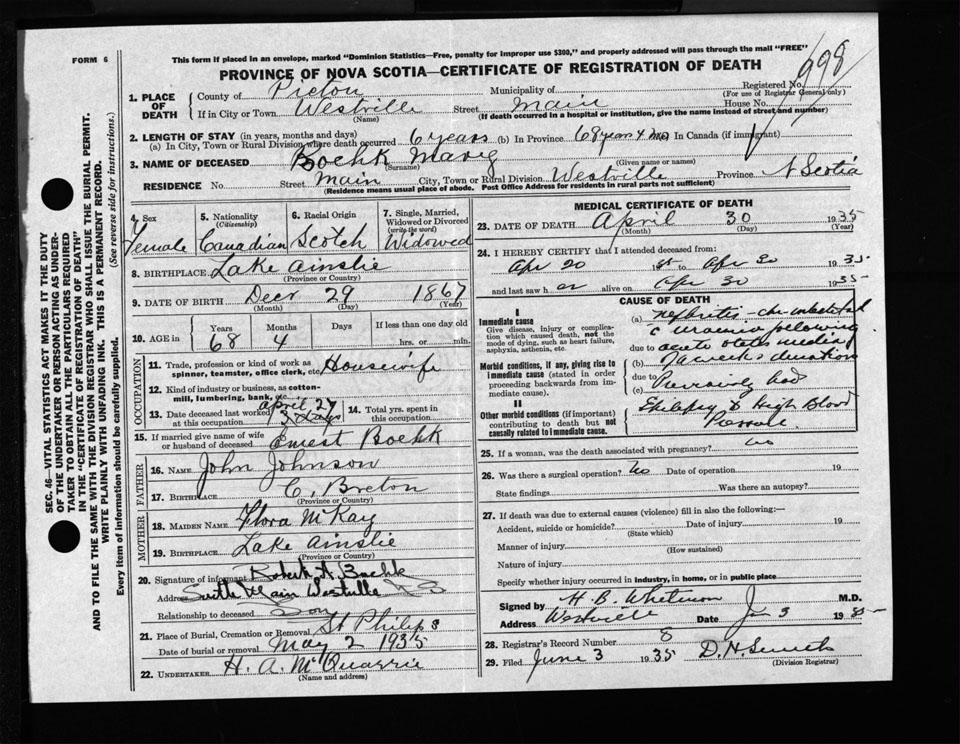 FORM 6
This form if placed in an envelope, marked "Dominion Statistics—Free, penalty for improper use $300," and properly addressed will pass through the mail "FREE"
PROVINCE OF NOVA SCOTIA—CERTIFICATE OF REGISTRATION OF DEATH
Registered No. 998
(For use of Registrar General only)
1. PLACE OF DEATH
County of Pictou Municipality of
If in City or Town Westville Street Main House No.
(Name) (If death occurred in a hospital or institution, give the name instead of street and number)
2. LENGTH OF STAY (in years, months and days)
(a) In City, Town or Rural Division where death occurred 6 years (b) In Province 68 years 4 mo In Canada (if immigrant)
3. NAME OF DECEASED Boehk Mary
(Surname) (Given name or names)
RESIDENCE No. Street Main City, Town or Rural Division Westville Province N Scotia
(Residence means usual place of abode. Post Office Address for residents in rural parts not sufficient)
4. Sex Female
5. Nationality (Citizenship) Canadian
6. Racial Origin Scotch
7. Single, Married, Widowed or Divorced (write the word) Widowed
8. BIRTHPLACE Lake Ainslie
(Province or Country)
9. DATE OF BIRTH Decr 29 1867
(Month) (Day) (Year)
10. AGE in Years Months Days If less than one day old
68 4 hrs. or min.
OCCUPATION
11. Trade, profession or kind of work as spinner, teamster, office clerk, etc. Housewife
12. Kind of industry or business, as cotton-mill, lumbering, bank, etc.
13. Date deceased last worked at this occupation April 27 3 days
14. Total yrs. spent in this occupation
15. If married give name of wife or husband of deceased Ernest Boehk
FATHER
16. NAME John Johnson
17. BIRTHPLACE C. Breton
(Province or Country)
MOTHER
18. MAIDEN NAME Flora McKay
19. BIRTHPLACE Lake Ainslie
(Province or Country)
20. Signature of informant Robert A. Boehk
Address South Main Westville N S
Relationship to deceased Son
21. Place of Burial, Cremation or Removal St Philips
Date of burial or removal May 2 1935
22. UNDERTAKER H. A. McQuarrie
(Name and address)
MEDICAL CERTIFICATE OF DEATH
23. DATE OF DEATH April 30 1935
(Month) (Day) (Year)
24. I HEREBY CERTIFY that I attended deceased from:
Apr 20 19 to Apr 30 1935
and last saw her alive on Apr 30 1935
CAUSE OF DEATH
I
Immediate cause
Give disease, injury or complication which caused death, not the mode of dying, such as heart failure, asphyxia, asthenia, etc.
Morbid conditions, if any, giving rise to immediate cause (stated in order proceeding backwards from immediate cause).
II
Other morbid conditions (if important) contributing to death but not causally related to immediate cause.
(a) Nephritis
uraemia following
due to acute otitis media
(b) week's duration
due to
(c) Previously had
Epilepsy & high Blood
Pressure
25. If a woman, was the death associated with pregnancy? No
26. Was there a surgical operation? No Date of operation 19
State findings Was there an autopsy?
27. If death was due to external causes (violence) fill in also the following:—
Accident, suicide or homicide? Date of injury 19
(State which)
Manner of injury
(How sustained)
Nature of injury
Specify whether injury occurred in industry, in home, or in public place
Signed by H. B. Whitman M.D.
Address Westville Date Jun 3 1935
28. Registrar's Record Number 8
29. Filed June 3 1935 D. H. Smith
(Division Registrar)
SEC. 46—VITAL STATISTICS ACT MAKES IT THE DUTY
OF THE UNDERTAKER OR PERSON ACTING AS UNDER-
TAKER TO OBTAIN ALL THE PARTICULARS REQUIRED
IN THE "CERTIFICATE OF REGISTRATION OF DEATH"
AND TO FILE THE SAME WITH THE DIVISION REGISTRAR WHO SHALL ISSUE THE BURIAL PERMIT.
WRITE PLAINLY WITH UNFADING INK. THIS IS A PERMANENT RECORD.
Every item of information should be carefully supplied. (See reverse side for instructions.)